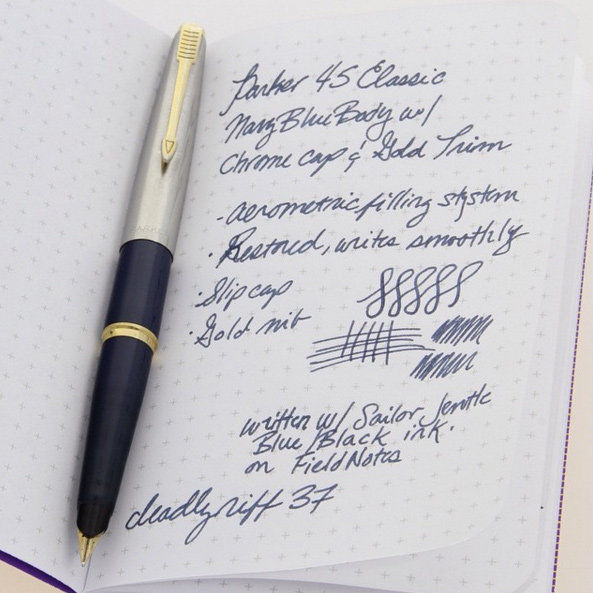 Parker 45 Classic
Navy Blue Body w/
Chrome cap & Gold Trim
- aerometric filling stystem
· Restored, writes smoothly
· Slip cap
· Gold nib
written w/ Sailor Jentle
Blue/Black ink.
on Field Notes
deadlyriff 37